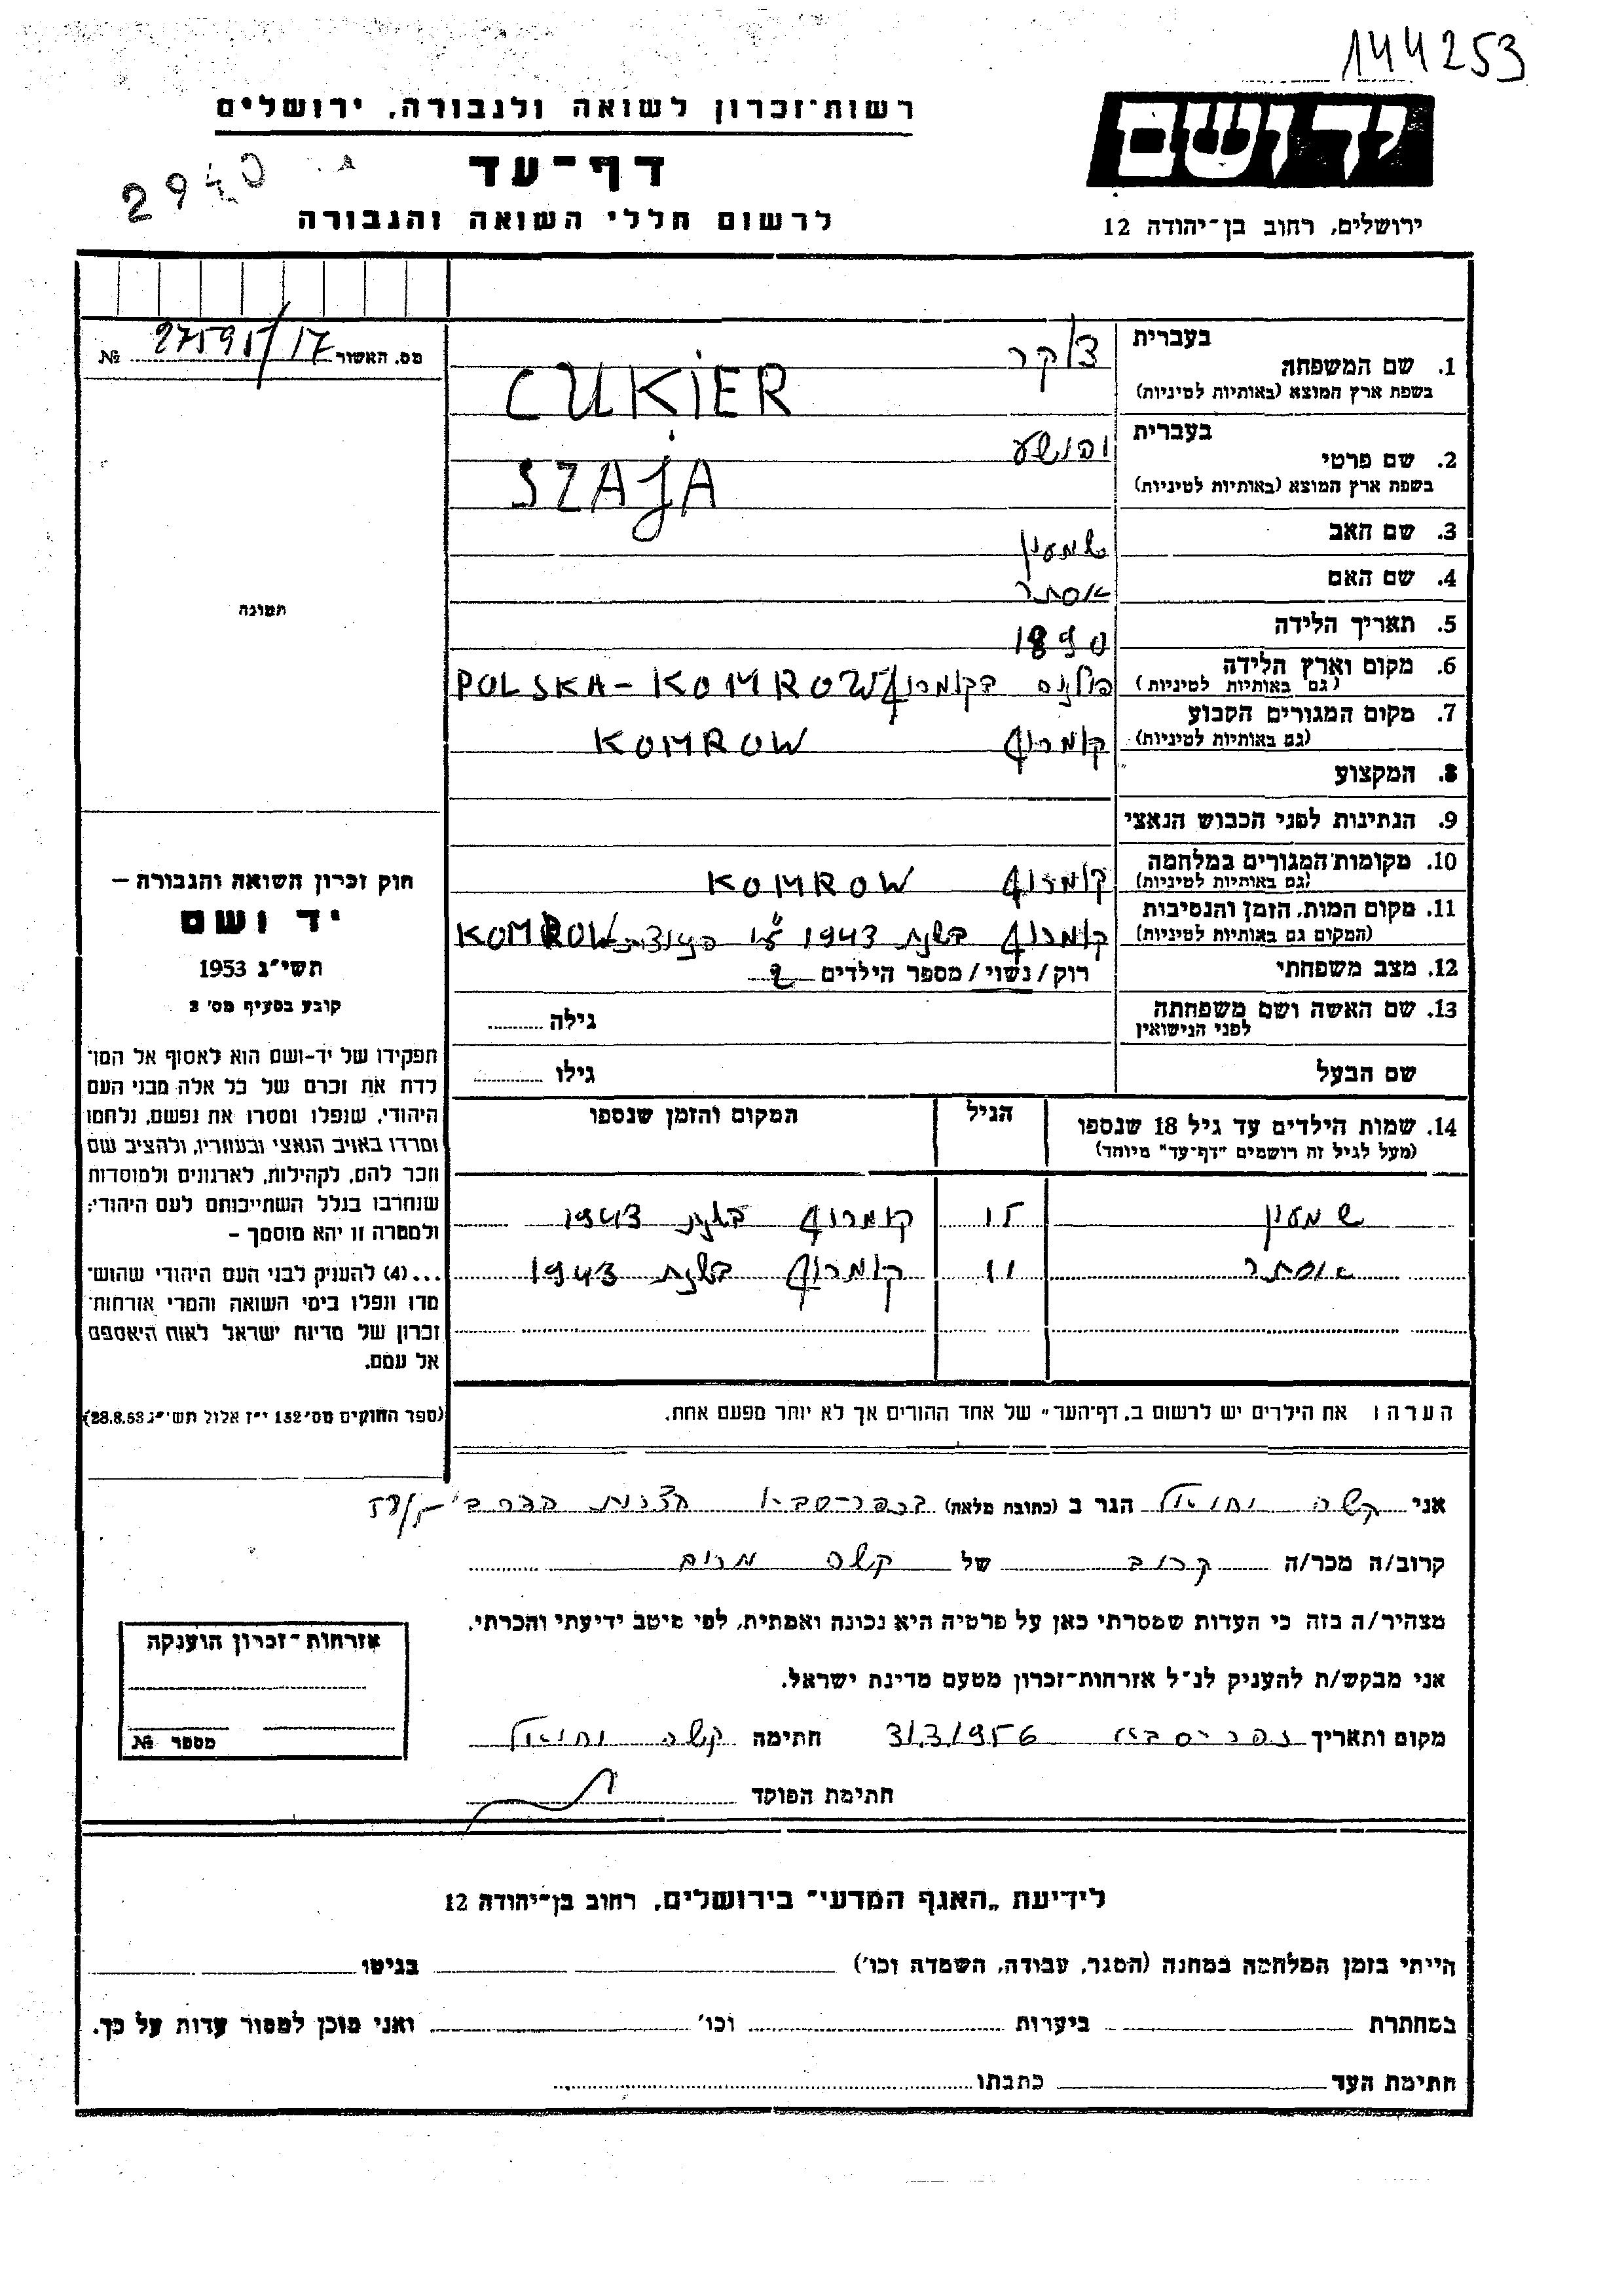 144253
יד ושם
רשות־זכרון לשואה ולגבורה, ירושלים
דף־עד
2940
לרשום חללי השואה והגבורה
ירושלים, רחוב בן־יהודה 12
מס. האשור 27595/17 №
בעברית
1. שם המשפחה צוקר
בשפת ארץ המוצא (באותיות לטיניות) CUKIER
בעברית
2. שם פרטי יהושע
בשפת ארץ המוצא (באותיות לטיניות) SZAJA
3. שם האב שמעון
4. שם האם אסתר
5. תאריך הלידה 1890
6. מקום וארץ הלידה
(גם באותיות לטיניות) פולניה בקומרוף POLSKA-KOMROW
7. מקום המגורים הקבוע
(גם באותיות לטיניות) קומרוף KOMROW
8. המקצוע
9. הנתינות לפני הכבוש הנאצי
10. מקומות המגורים במלחמה
(גם באותיות לטיניות) קומרוף KOMROW
11. מקום המות, הזמן והנסיבות
(המקום גם באותיות לטיניות) קומרוף בשנת 1943 ע"י KOMROW
12. מצב משפחתי רוק/נשוי/מספר הילדים 2
13. שם האשה ושם משפחתה
לפני הנישואין גילה
שם הבעל גילו
14. שמות הילדים עד גיל 18 שנספו הגיל המקום והזמן שנספו
(מעל לגיל זה רושמים "דף־עד" מיוחד)
שמעון 15 קומרוף בשנת 1943
אסתר 11 קומרוף בשנת 1943
הערה: את הילדים יש לרשום ב"דף־העד" של אחד ההורים אך לא יותר מפעם אחת.
תמונה
חוק זכרון השואה והגבורה –
יד ושם
תשי"ג 1953
קובע בסעיף מס' 2
תפקידו של יד-ושם הוא לאסוף אל המו־
לדת את זכרם של כל אלה מבני העם
היהודי, שנפלו ומסרו את נפשם, נלחמו
ומרדו באויב הנאצי ובעוזריו, ולהציב שם
וזכר להם, לקהילות, לארגונים ולמוסדות
שנחרבו בגלל השתייכותם לעם היהודי;
ולמטרה זו יהא מוסמך –
...(4) להעניק לבני העם היהודי שהוש־
מדו ונפלו בימי השואה והמרי אזרחות־
זכרון של מדינת ישראל לאות היאספם
אל עמם.
(ספר החוקים מס' 132 י"ז אלול תשי"ג 28.8.53)
אני קשה יחזקאל הגר ב (כתובת מלאה) בכפר-סבא
קרוב/ה מכר/ה קרוב של קשה מרים
מצהיר/ה בזה כי העדות שמסרתי כאן על פרטיה היא נכונה ואמתית, לפי מיטב ידיעתי והכרתי.
אני מבקש/ת להעניק לנ"ל אזרחות־זכרון מטעם מדינת ישראל.
מקום ותאריך כפר-סבא 31.3.1956 חתימה קשה יחזקאל
חתימת הפוקד
אזרחות־זכרון הוענקה
מספר №
לידיעת "האגף המדעי" בירושלים, רחוב בן־יהודה 12
הייתי בזמן המלחמה במחנה (הסגר, עבודה, השמדה וכו') בגיטו
במחתרת ביערות וכו' ואני מוכן למסור עדות על כך.
חתימת העד כתבתו